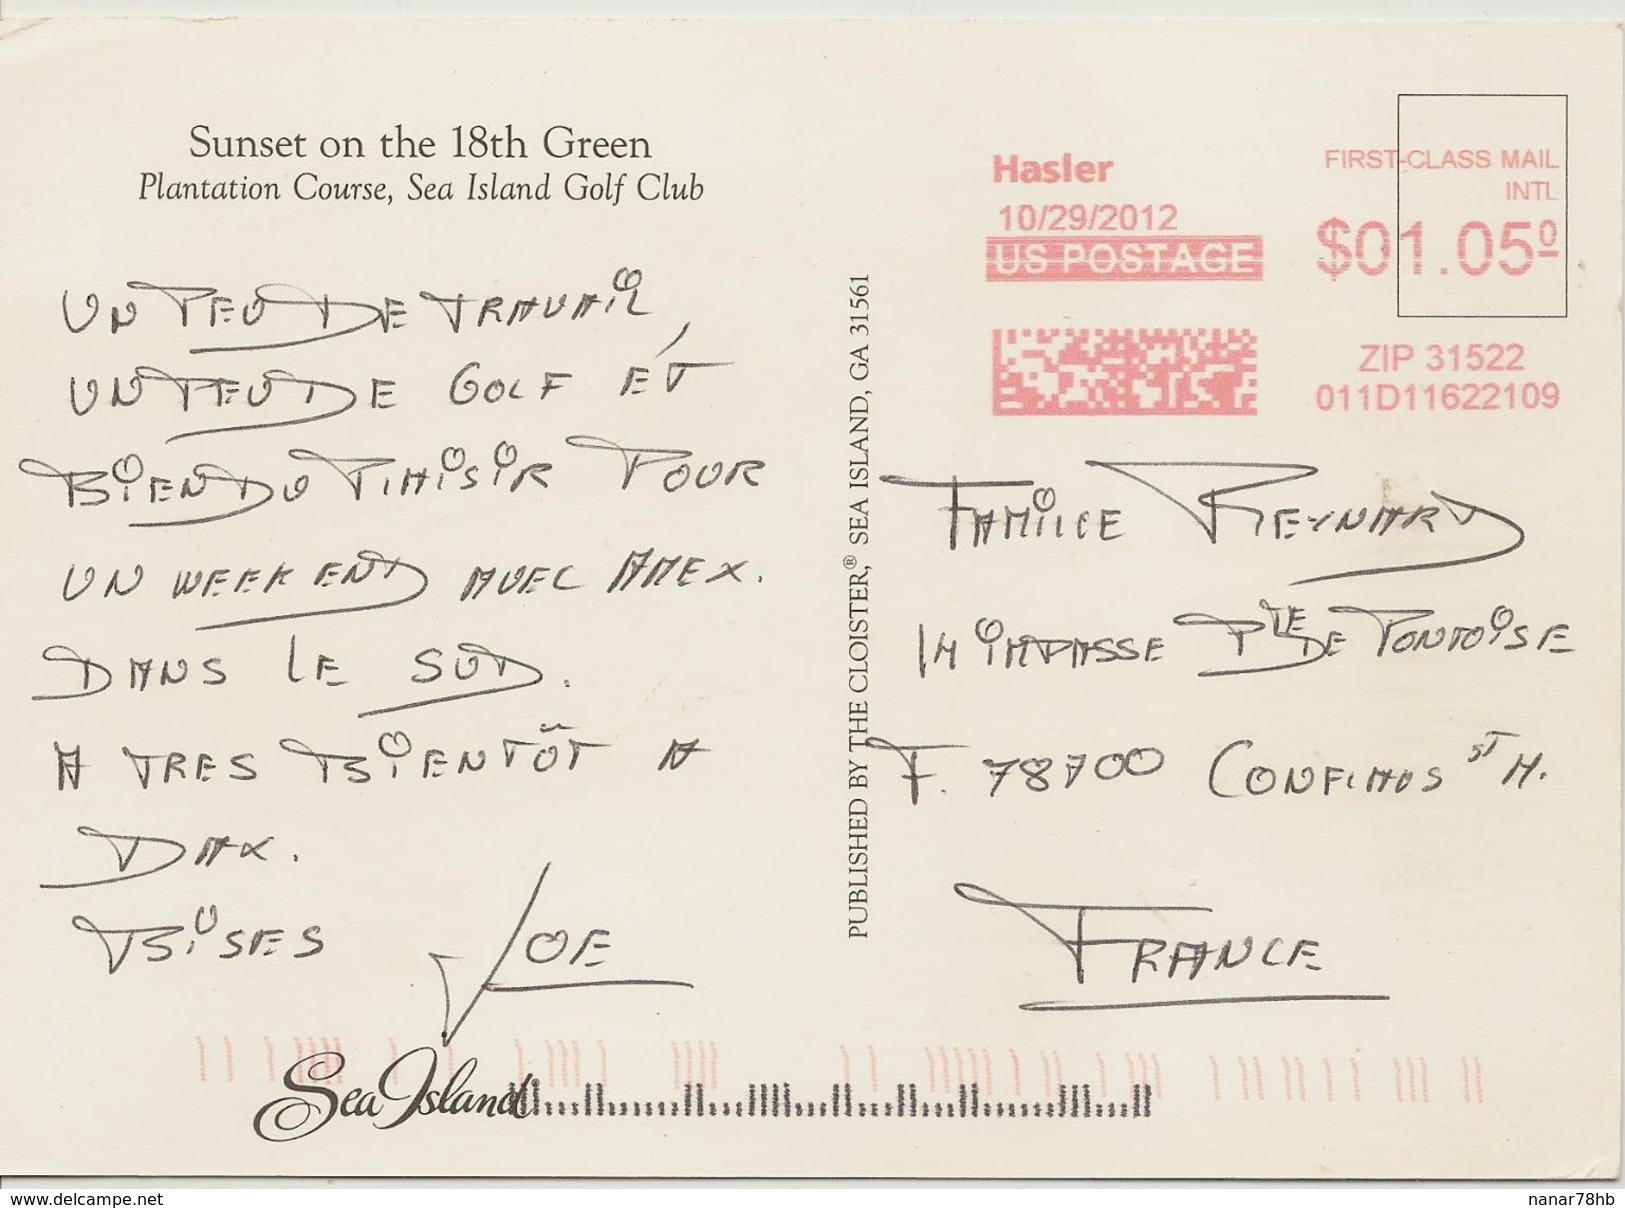 Sunset on the 18th Green
Plantation Course, Sea Island Golf Club
UN PEU DE TRAVAIL,
UN PEU DE GOLF ET
BIEN DU PLAISIR POUR
UN WEEK END AVEC AMEX.
DANS LE SUD.
A TRES BIENTÔT A
DAX.
BISES JOE
Sea Island
PUBLISHED BY THE CLOISTER,® SEA ISLAND, GA 31561
Hasler
10/29/2012
US POSTAGE
FIRST-CLASS MAIL
INTL
$01.05⁰
ZIP 31522
011D11622109
FAMILLE REYNARD
14 IMPASSE PTE DE PONTOISE
F. 78700 CONFLANS ST H.
FRANCE
www.delcampe.net
nanar78hb